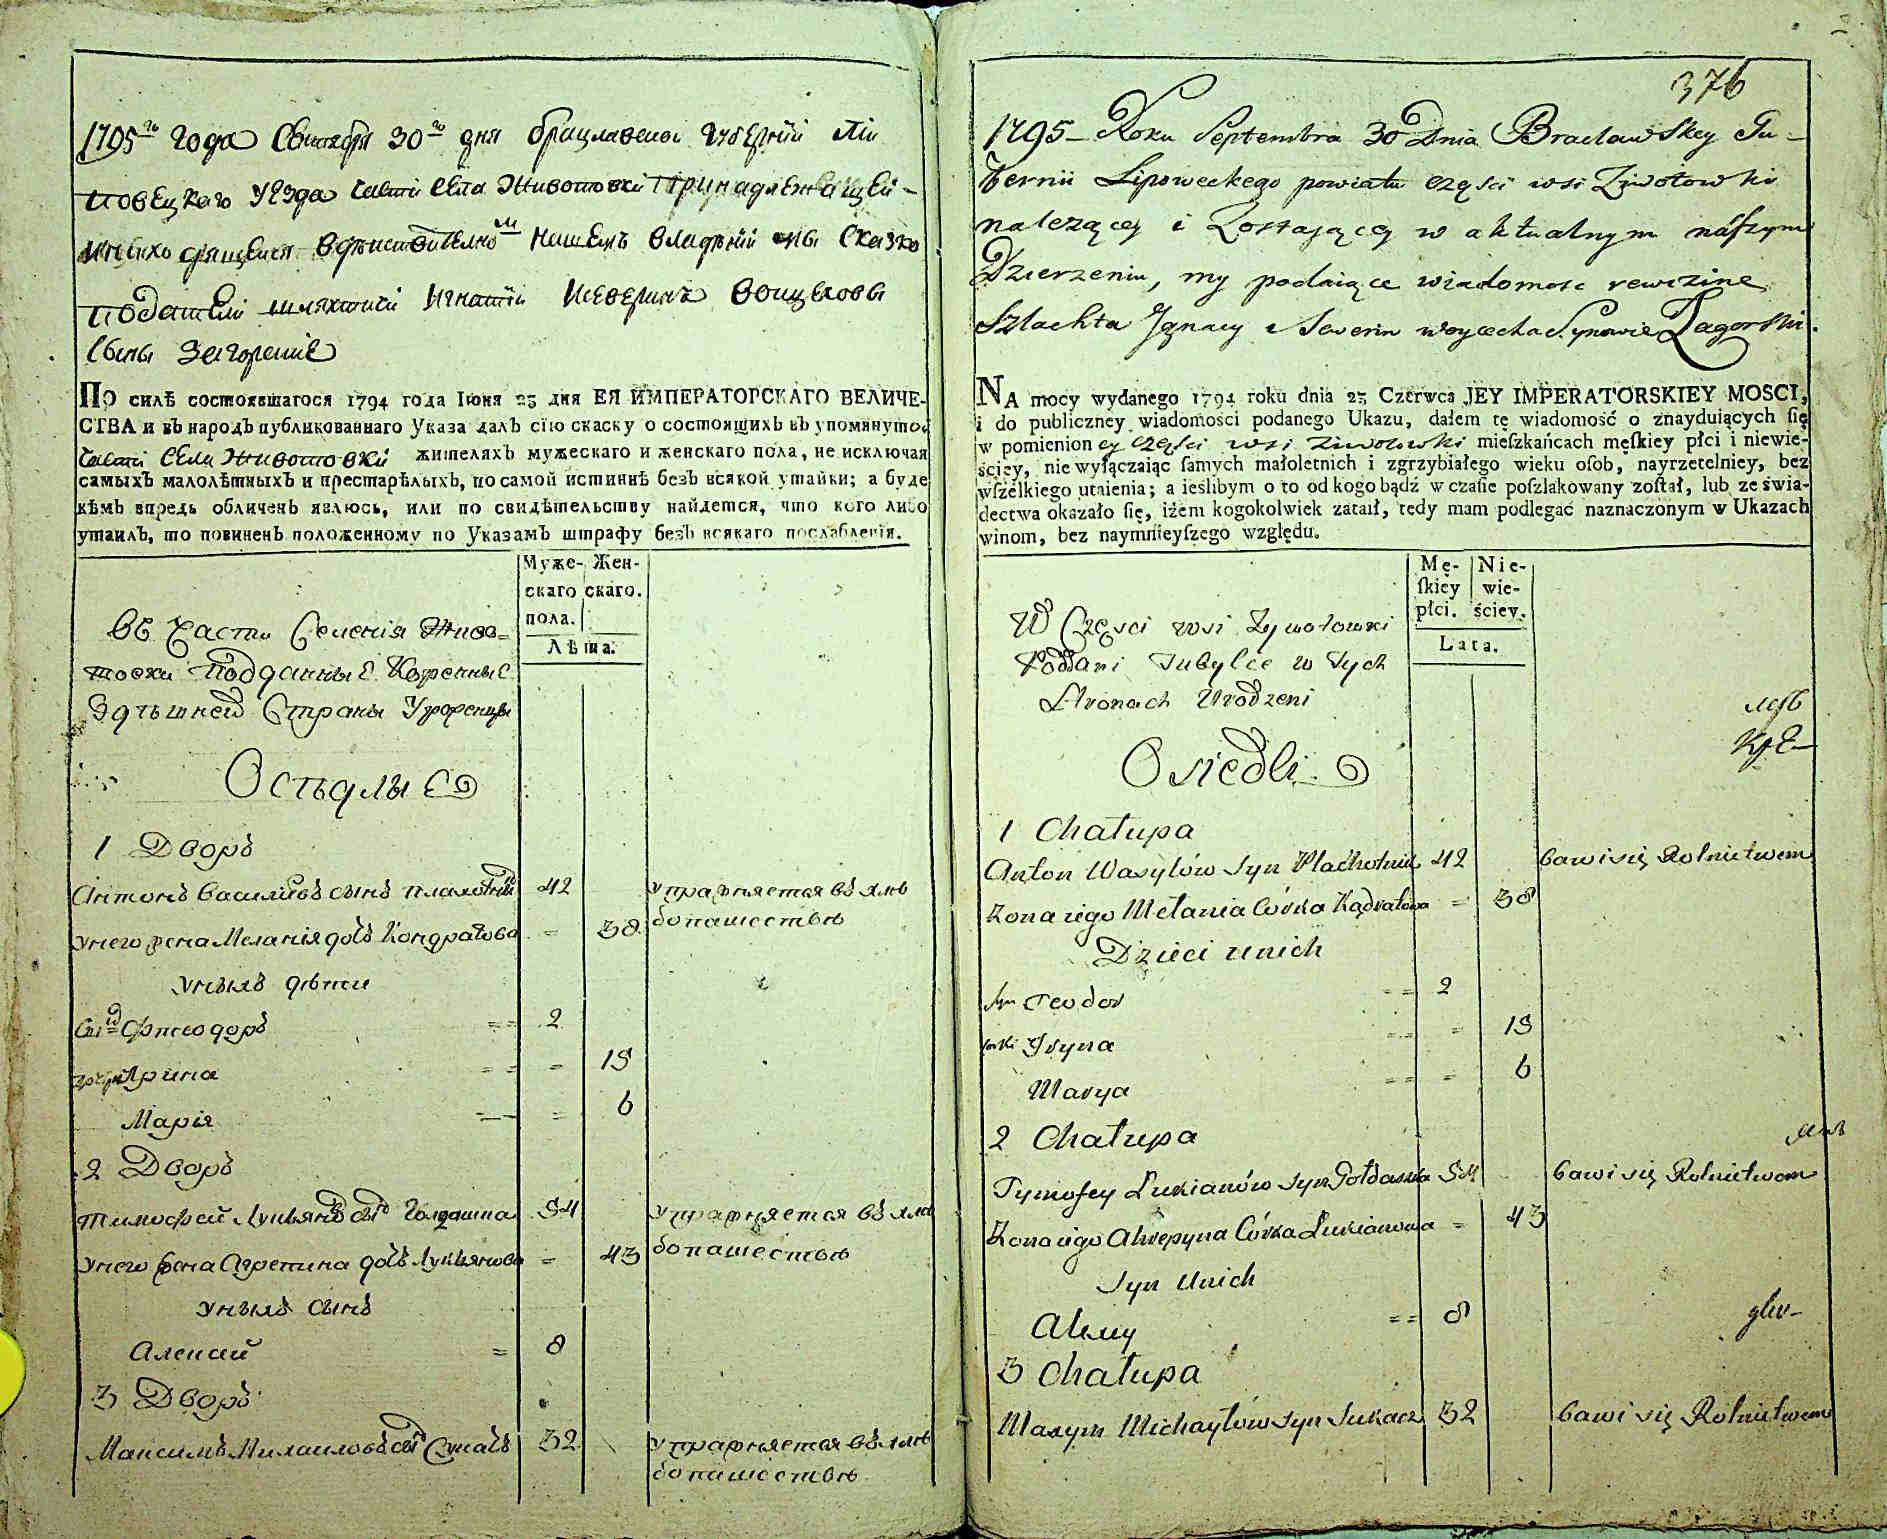 1795го года Сентября 30го дня Брацлавской губерний Ли
повецкаго уезда части села Животовки принадлежащей
и находящейся в действителном нашем владении мы сказко
податели шляхтичи Игнатий и Северин Войцеховы
сыны Загорские
По силѣ состоявшагося 1794 года Іюня 23 дня ЕЯ ИМПЕРАТОРСКАГО ВЕЛИЧЕ-
СТВА и въ народъ публикованнаго Указа далъ сію скаску о состоящихъ въ упомянутой
части села Животовки жителяхъ мужескаго и женскаго пола, не исключая
самыхъ малолѣтныхъ и престарѣлыхъ, по самой истиннѣ безъ всякой утайки; а буде
кѣмъ впредь обличенъ явлюсь, или по свидѣтельству найдется, что кого либо
утаилъ, то повиненъ положенному по Указамъ штрафу безъ всякаго послабленія.
Муже- Жен-
скаго скаго.
пола.
Лѣта.
Въ части Селенія Живо=
товки Подданные Коренные
Здѣшней Страны Урожен
Осѣдлые
1 Дворъ
Антонъ Василиевъ сынъ 42 упражняется въ хле
у него жена Меланія дочь Кондратова = 38 бопашествѣ
у нихъ дѣти
сынъ Фтеодоръ = = 2
Ярина = = = 15
Марія = = 6
2 Дворъ
Тимофей Лукьянъ сынъ Голдашка 54 упражняется въ хле
у него жена Агрепина дочь Лукьянова = 43 бопашествѣ
у нихъ сынъ
Алексѣй = 8
3 Дворъ
Максимъ Михаиловъ сынъ Сукачъ 32 упражняется въ хле
бопашествѣ
376
1795 – Roku Septembra 30 Dnia Bracławskey Gu–
bernii Lipoweckego powiatu części wsi Zywotowki
nalezącey i Zostającey w aktualnym nászym
Dzierzeniu, my podaiące wiadomosc rewizine
Szlachta Jgnacy i Seweryn Woyciecha Synowie Zagorski.
NA mocy wydanego 1794 roku dnia 23 Czerwca JEY IMPERATORSKIEY MOSCI,
i do publiczney wiadomości podanego Ukazu, dałem tę wiadomość o znayduiących się
w pomienioney części wsi Ziwotowki mieszkańcach męskiey płci i niewie-
ściey, nie wyłączaiąc samych małoletnich i zgrzybiałego wieku osob, nayrzetelniey, bez
wszelkiego utaienia; a ieslibym o to od kogo bądź w czasie poszlakowany został, lub ze świa-
dectwa okazało się, iżem kogokolwiek zataił, tedy mam podlegać naznaczonym w Ukazach
winom, bez naymnieyszego względu.
Mę- Nie-
skiey wie-
płci. ściey.
Lata.
W Częsci wsi Zywotowki
Poddani Tubylce w Tych
Stronach Urodzeni
Osiedli
1 Chałupa
Anton Wasylów Syn Płachotnik 42 bawi się Rolnictwem
Zona iego Mełania Córka Kądratowa = 38
Dzieci u nich
syn Teodor = = 2
corki Iryna = = = 15
Marya = = = 6
2 Chałupa
Tymofey Łukianów syn Gołdaszka 54 bawi się Rolnictwem
Zona iego Ahrepyna Córka Łukianowa = 43
Syn u nich
= = 8
3 Chałupa
Maxym Michayłów syn Sukacz 32 bawi się Rolnictwem